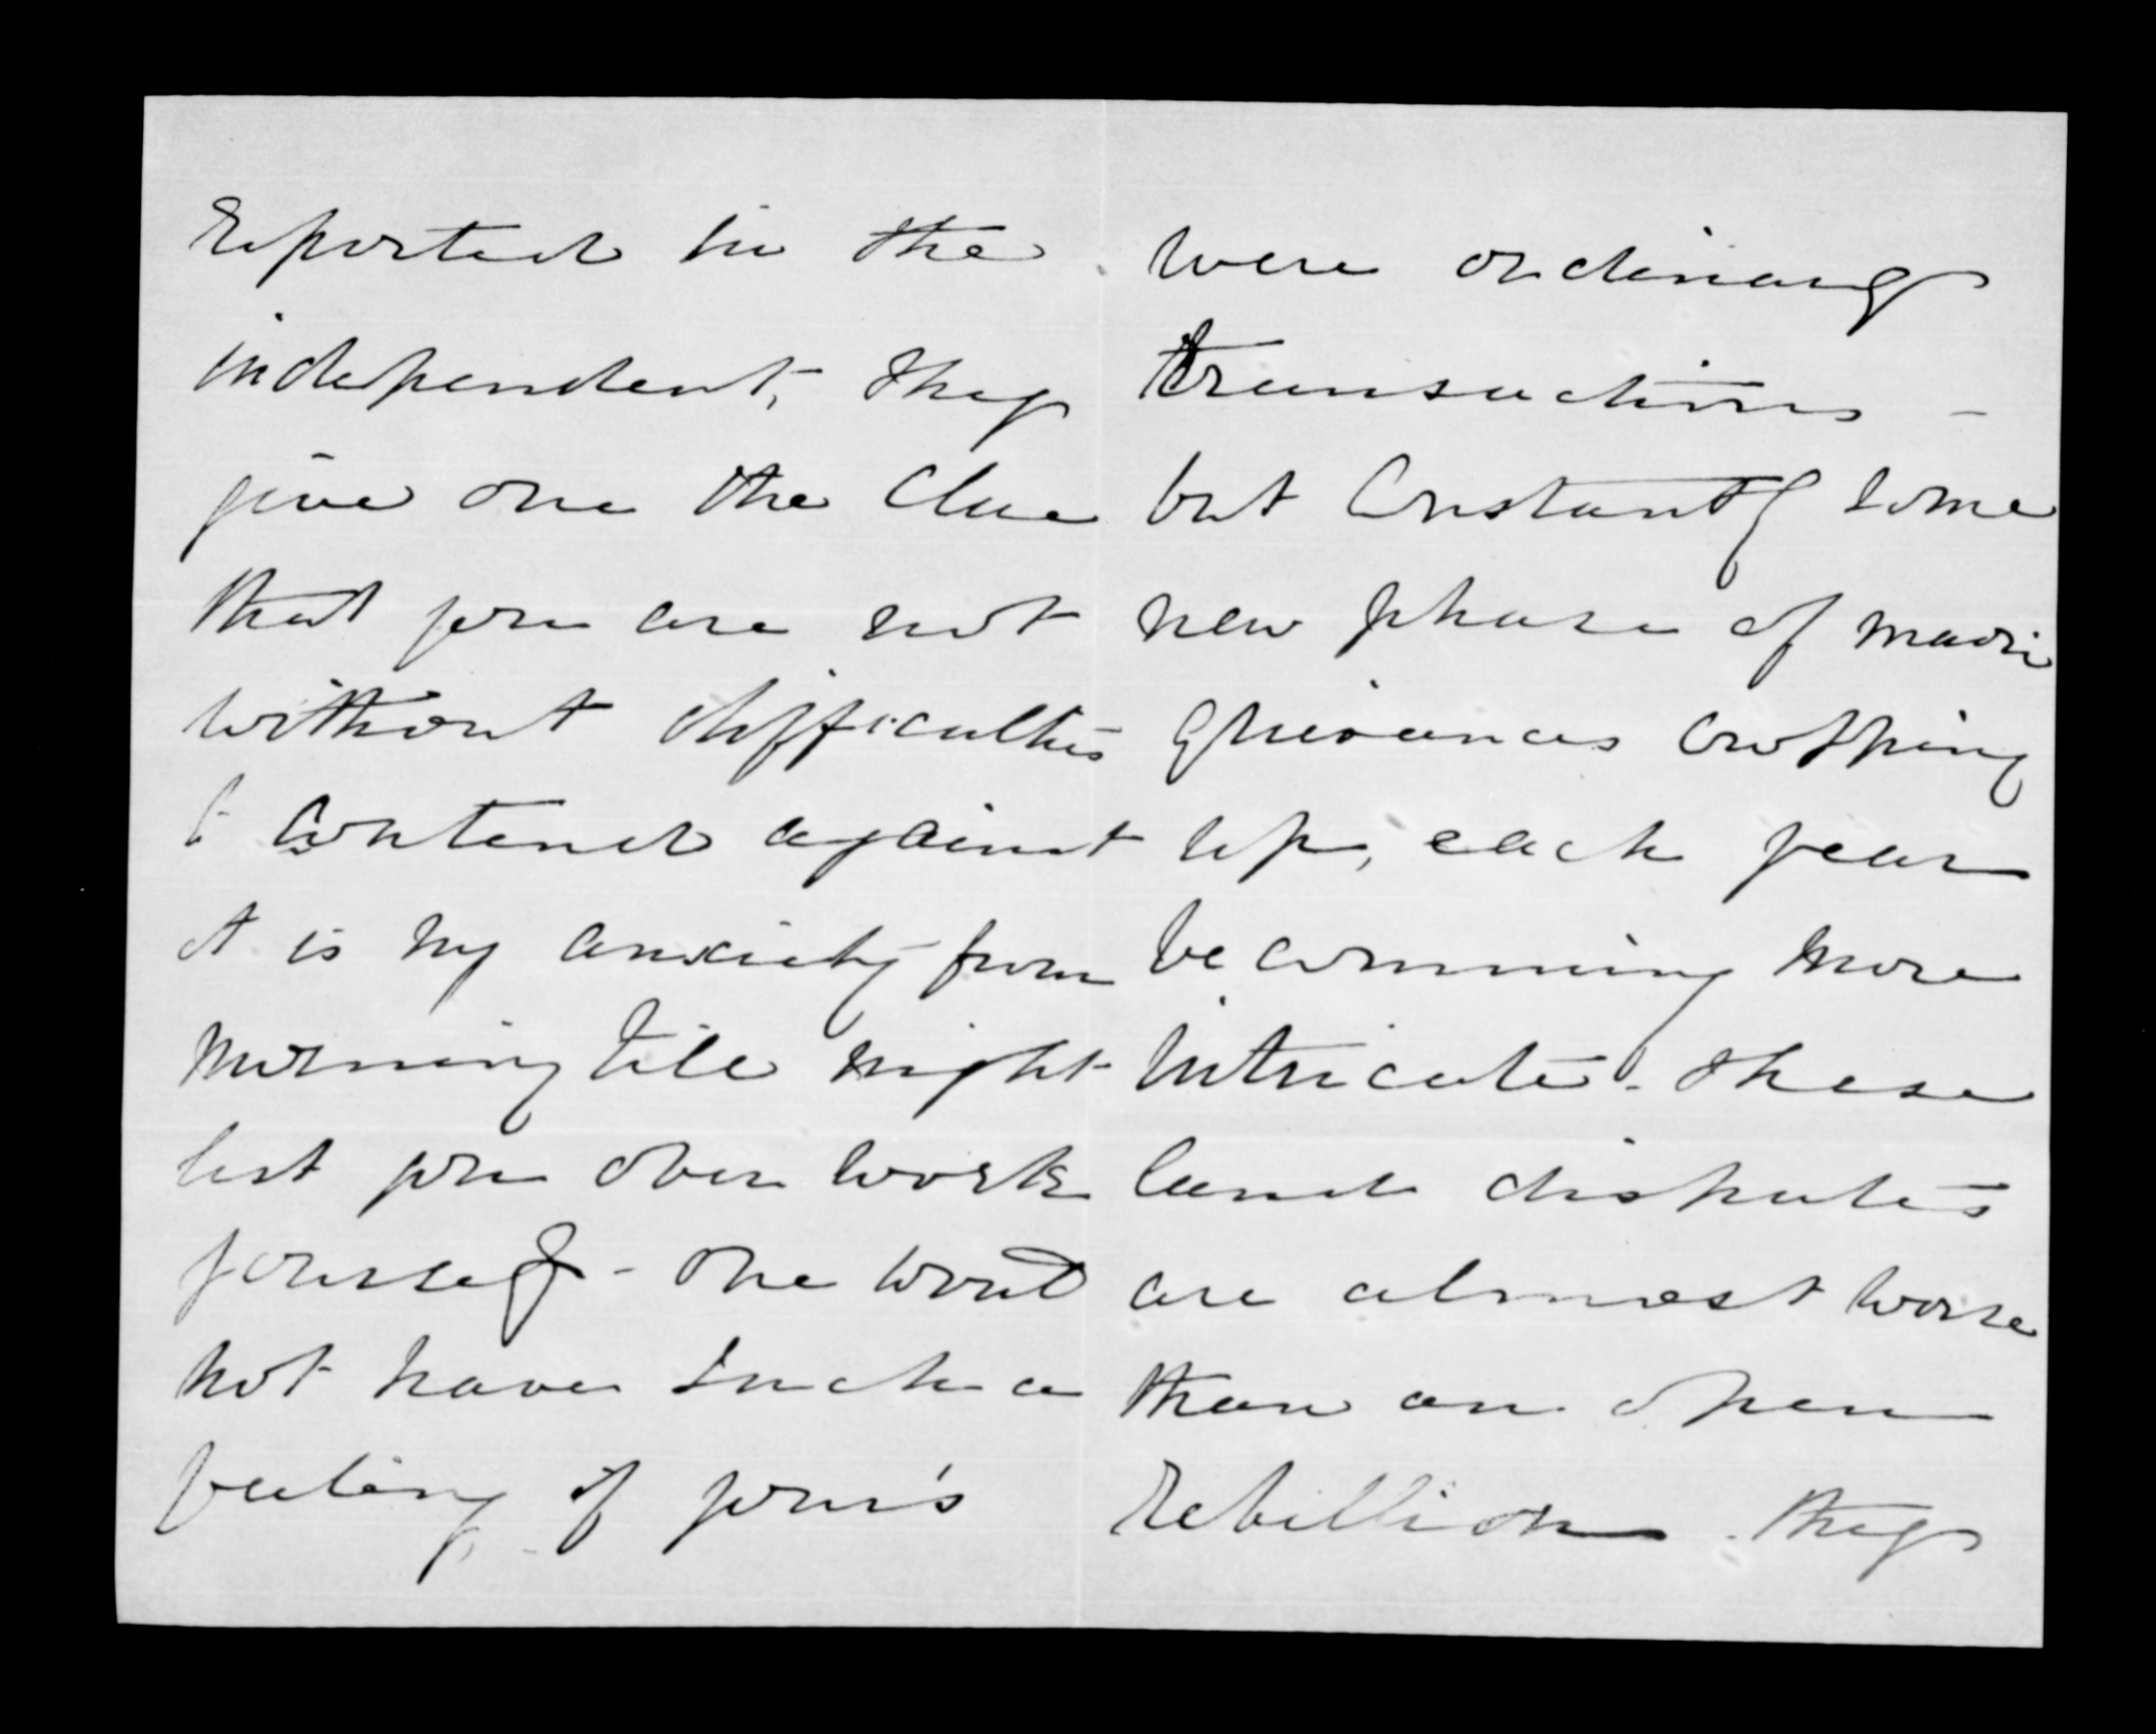 reported in the
independent, they
give one the clue
that you are not
without difficulties
to contend against
it is my anxiety from
morning till night
lest you over work
yourself - One would
not have such a
feeling if your's
were ordinary
transactions -
but constantly some
new phase of maori
grievances cropping
up, each year
becomming more
intricate. these
land disputes
are almost worse
than an open
rebillion. they